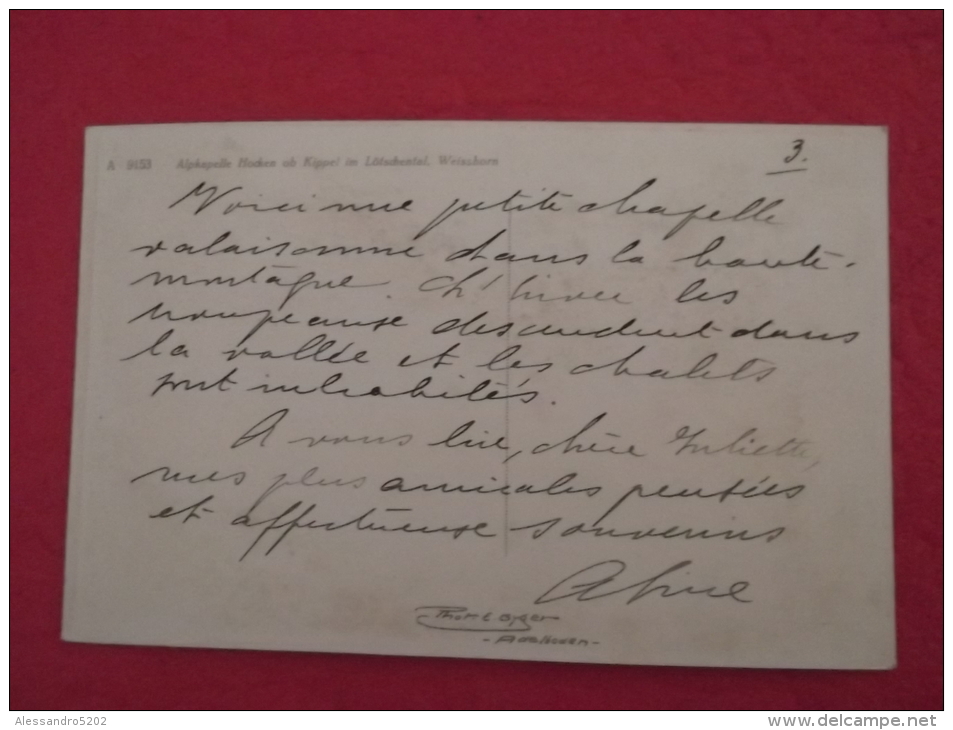 3.
A 9153 Alpkapelle Hocken ob Kippel im Lötschental. Weisshorn
Voici une petite chapelle
valaisanne dans la haute-
montagne. L'hiver les
troupeaux descendent dans
la vallée et les chalets
sont inhabités.
A vous lire, chère Juliette,
mes plus amicales pensées
et affectueuse souvenirs
Aline
Phot. E. Gyger
- Adelboden -
Alessandro5202
www.delcampe.net